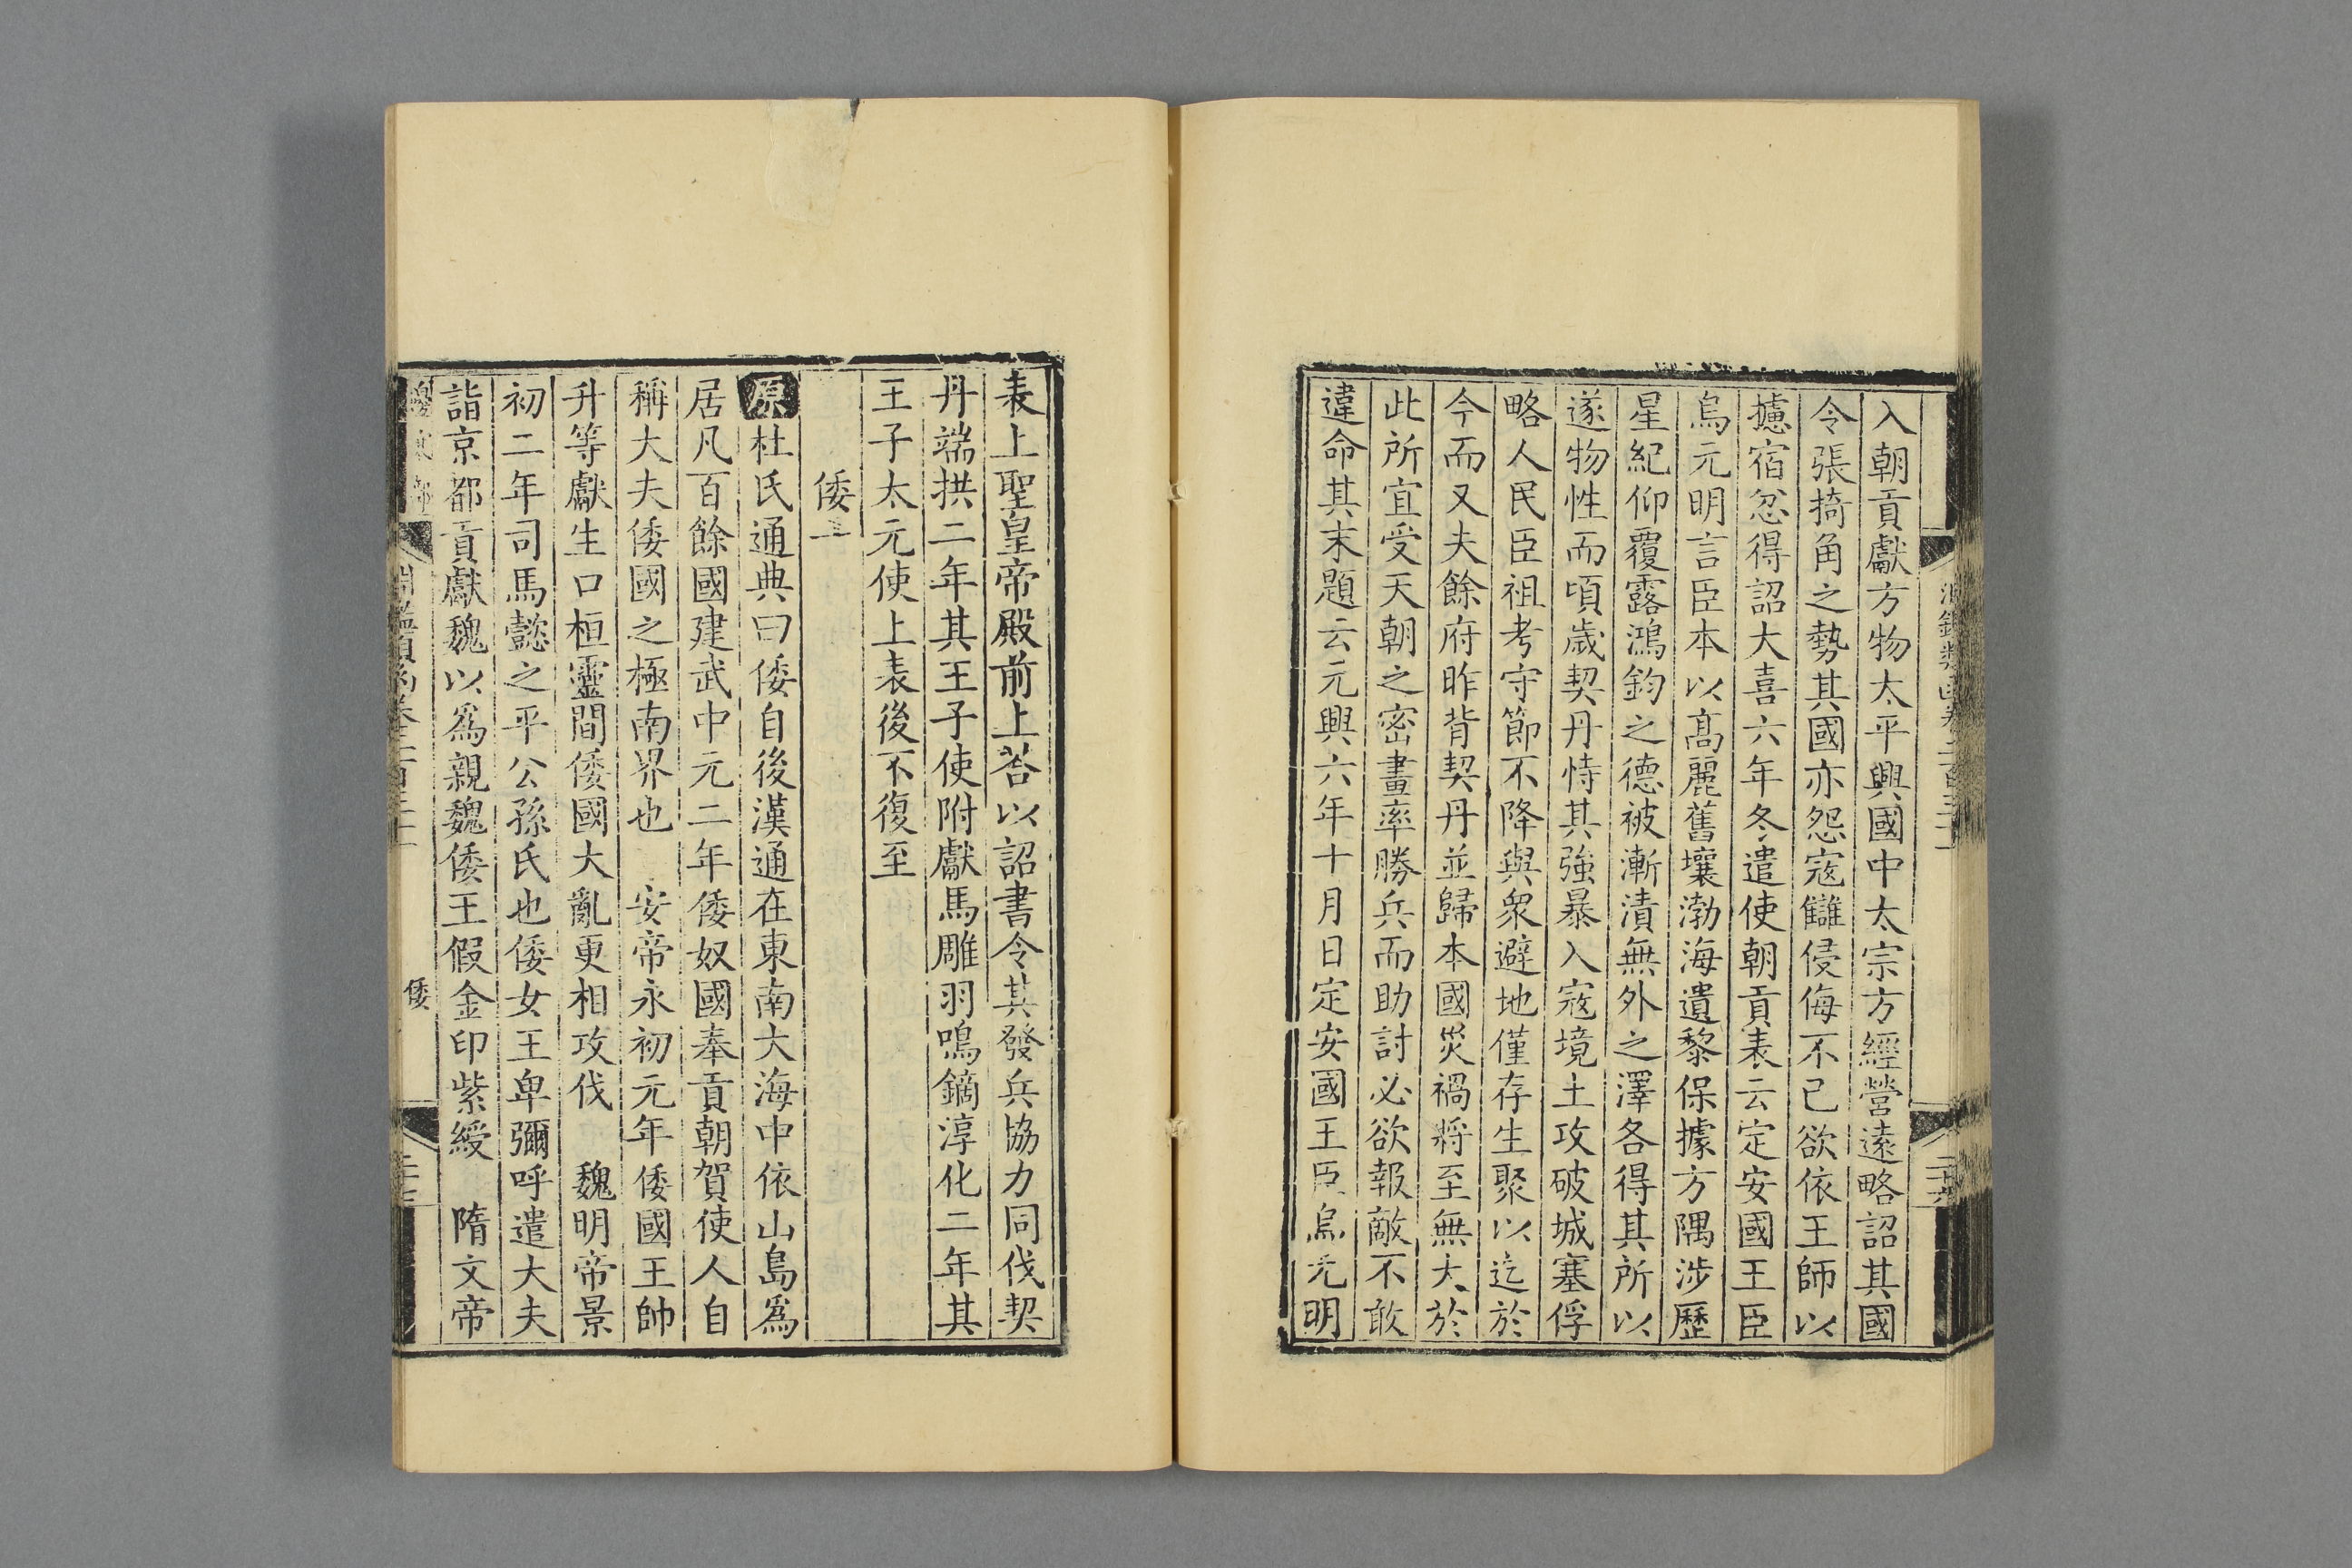 入朝貢獻方物太平興國中太宗方經營遠略詔其國
令張掎角之勢其國亦怨寇讎侵侮不已欲依王師以
攄宿忿得詔大喜六年冬遣使朝貢表云定安國王臣
烏元明言臣本以高麗舊壤渤海遺黎保據方隅涉歷
星紀仰覆露鴻鈞之德被漸漬無外之澤各得其所以
遂物性而頃歲契丹恃其強暴入寇境土攻破城塞俘
略人民臣祖考守節不降與衆避地僅存生聚以迄於
今而又夫餘府昨背契丹並歸本國災禍將至無大於
此所宜受天朝之密畫率勝兵而助討必欲報敵不敢
違命其末題云元興六年十月日定安國王臣烏元明
表上聖皇帝殿前上荅以詔書令其發兵協力同伐契
丹端拱二年其王子使附獻馬雕羽鳴鏑淳化二年其
王子太元使上表後不復至
倭
原杜氏通典曰倭自後漢通在東南大海中依山島爲
居凡百餘國建武中元二年倭奴國奉貢朝賀使人自
稱大夫倭國之極南界也 安帝永初元年倭國王帥
升等獻生口桓靈間倭國大亂更相攻伐 魏明帝景
初二年司馬懿之平公孫氏也倭女王卑彌呼遣大夫
詣京都貢獻魏以爲親魏倭王假金印紫綬 隋文帝
倭